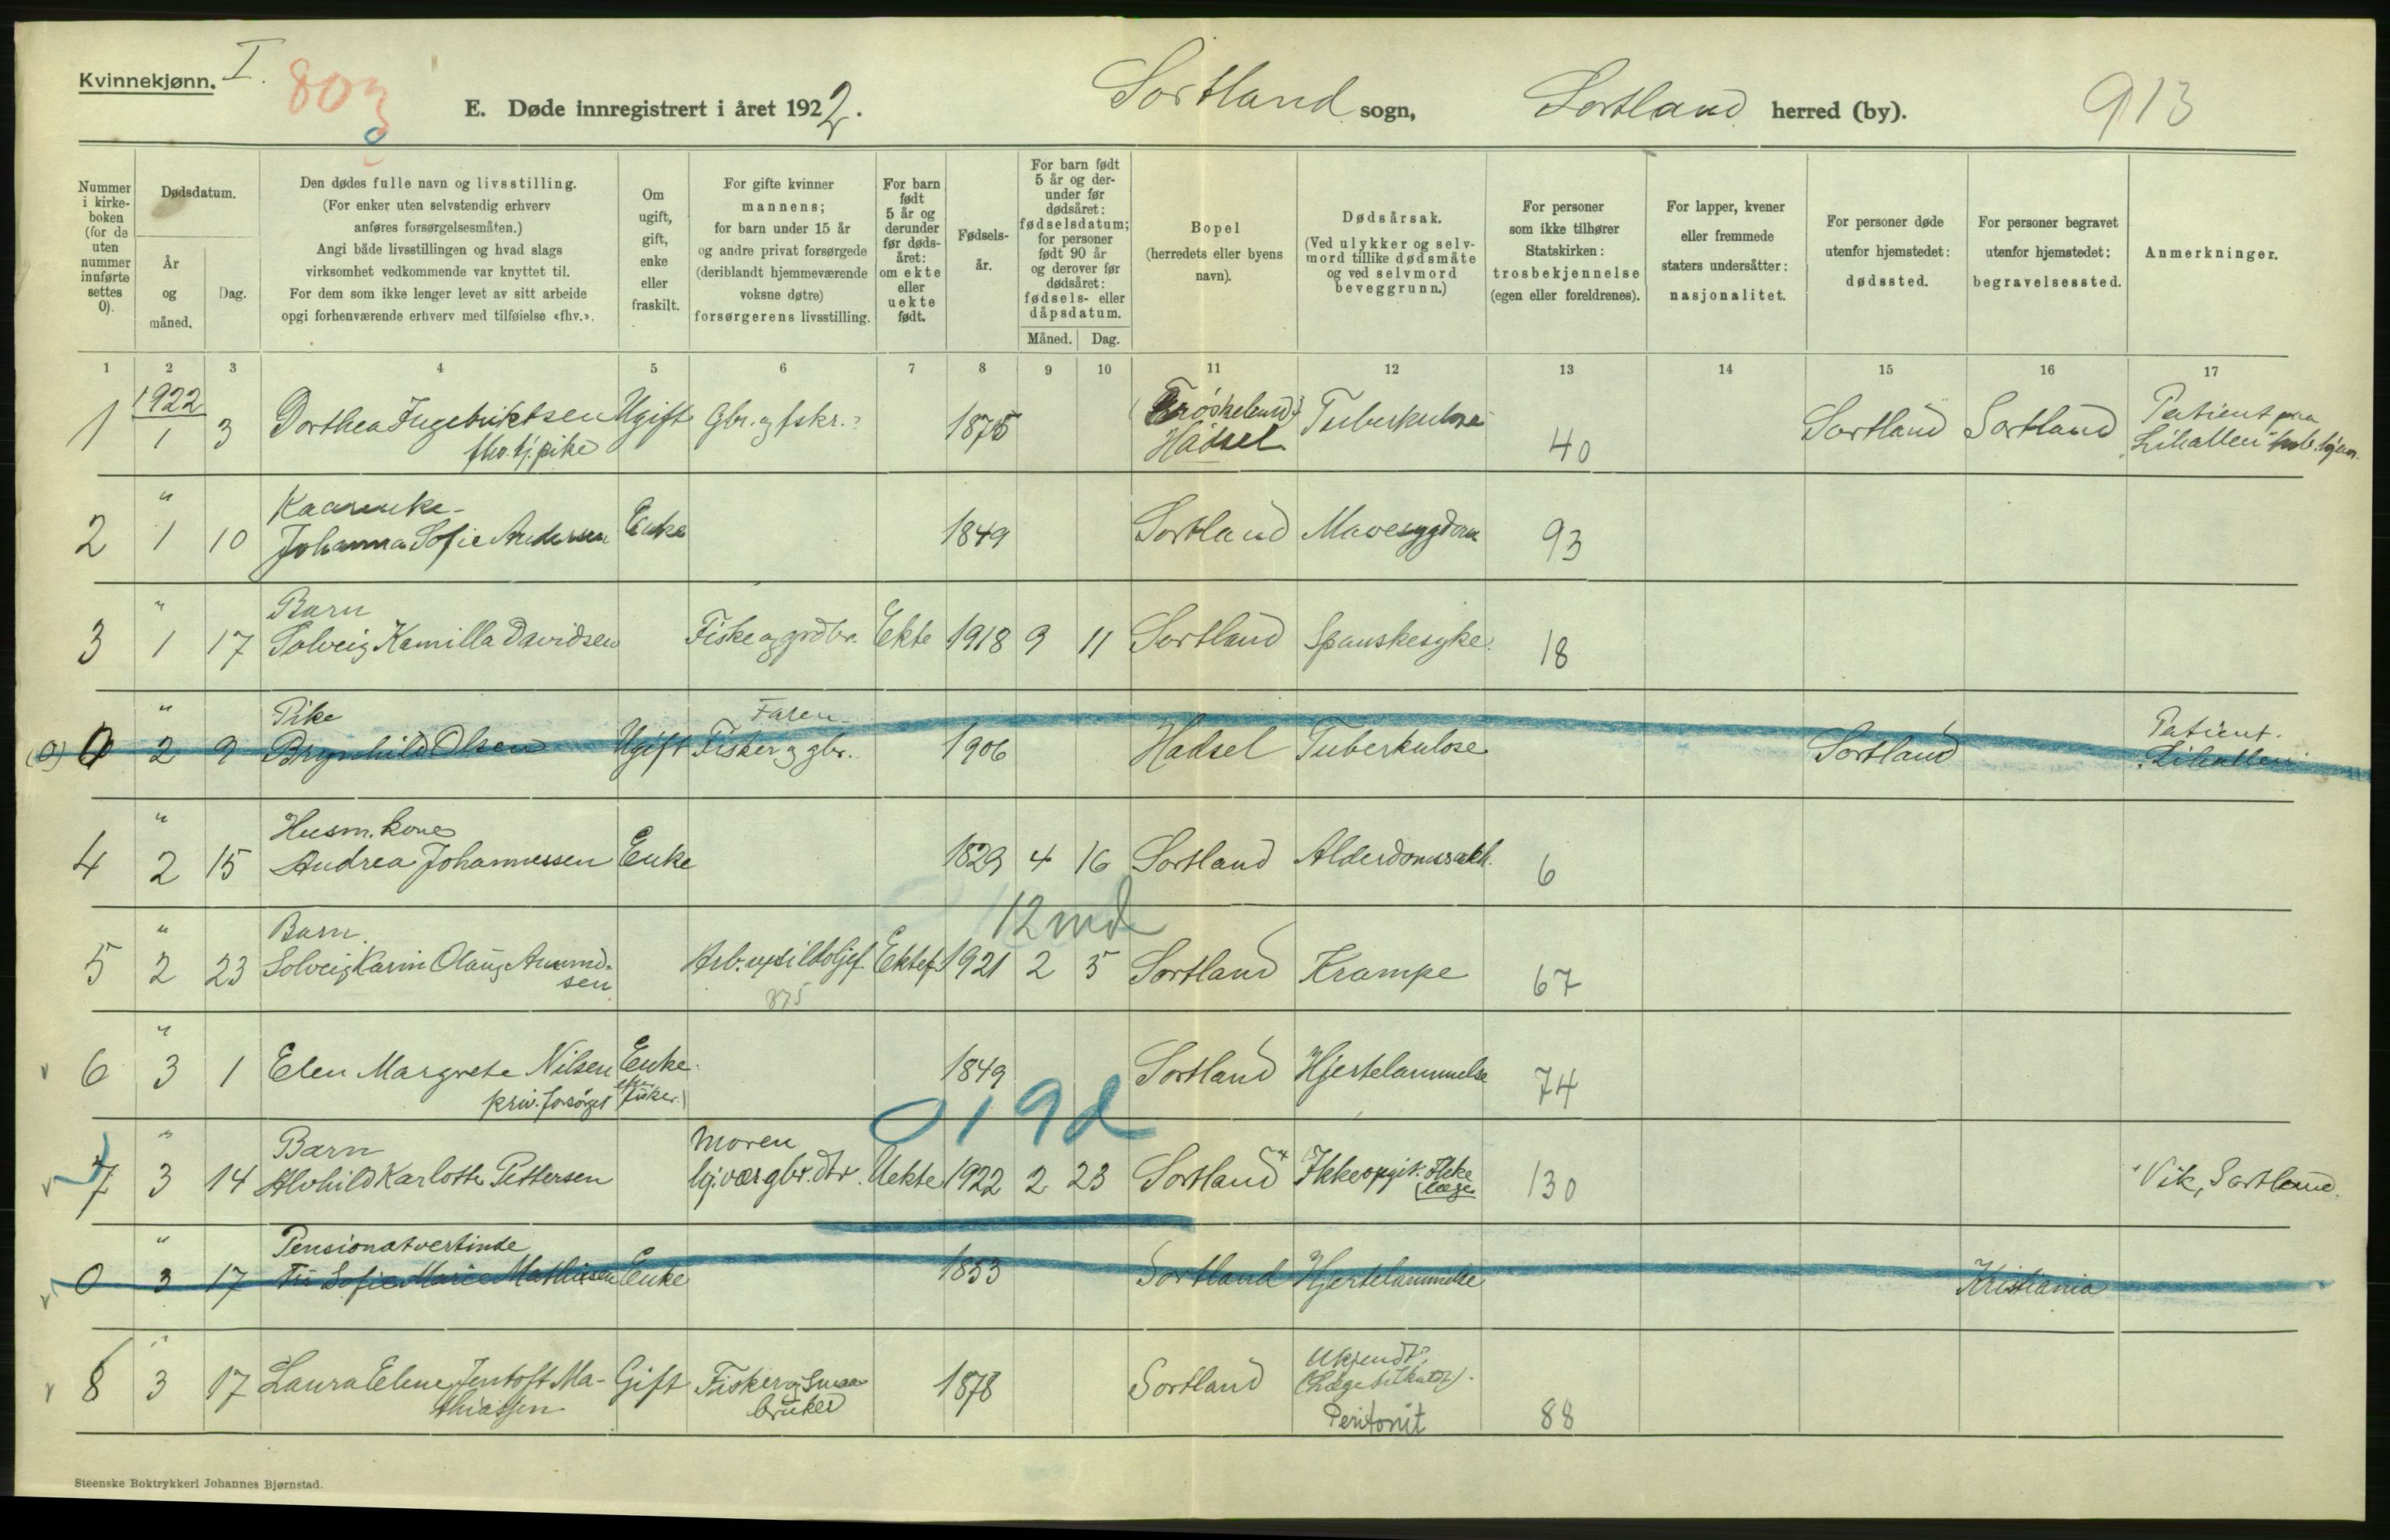 Kvinnekjønn. I.
803
E. Døde innregistrert i året 1922.
Sortland sogn,
Sortland herred (by).
913
Nummer i kirke-boken (for de uten nummer innførte settes 0).
Dødsdatum.
År og måned.
Dag.
Den dødes fulle navn og livsstilling.
(For enker uten selvstendig erhverv anføres forsørgelsesmåten.)
Angi både livsstillingen og hvad slags virksomhet vedkommende var knyttet til.
For dem som ikke lenger levet av sitt arbeide opgi forhenværende erhverv med tilføielse «fhv.».
Om ugift, gift, enke eller fraskilt.
For gifte kvinner mannens; for barn under 15 år og andre privat forsørgede (deriblandt hjemmeværende voksne døtre) forsørgerens livsstilling.
For barn født 5 år og derunder før døds-året: om ekte eller uekte født.
Fødsels-år.
For barn født 5 år og der-under før dødsåret: fødselsdatum; for personer født 90 år og derover før dødsåret: fødsels- eller dåpsdatum.
Måned. Dag.
Bopel (herredets eller byens navn).
Dødsårsak. (Ved ulykker og selv-mord tillike dødsmåte og ved selvmord beveggrunn.)
For personer som ikke tilhører Statskirken: trosbekjennelse (egen eller foreldrenes).
For lapper, kvener eller fremmede staters undersåtter: nasjonalitet.
For personer døde utenfor hjemstedet: dødssted.
For personer begravet utenfor hjemstedet: begravelsessted.
Anmerkninger.
1 2 3 4 5 6 7 8 9 10 11 12 13 14 15 16 17
1 1922 1 3 Dorthea Ingebriktsen fhv. tj. pike Ugift Gbr. og fskr. 1875 Hadsel Tuberkulose 40 Sortland Sortland Patient paa Lihallen
2 " 1 10 Kaarenke- Johanna Sofie Andersen Enke 1849 Sortland Mavesygdom 93
3 " 1 17 Barn Solveig Kamilla Davidsen Fiske og grdbr. Ekte 1918 9 11 Sortland Spanskesyke. 18
(0) 0 " 2 9 Pike Brynhild Olsen Ugift Faren Fisker og gbr. 1906 Hadsel Tuberkulose Sortland Patient. Lihallen
4 " 2 15 Husm. kone Andrea Johannessen Enke 1829 4 16 Sortland Alderdomssvakh. 6
12 md
5 " 2 23 Barn. Solveig Karin Olaug Amund-sen Arb. v/sildoljef. Ektef. 1921 2 5 Sortland Krampe 67
875
6 " 3 1 Elen Margrete Nilsen priv. forsørget Enke efter fisker. 1849 Sortland Hjertelammelse 74
0 19 d
7 " 3 14 Barn Alvhild Karlotte Pettersen Moren hj. vær gbr. dtr. Uekte 1922 2 23 Sortland Ikke opgit. Ikke læge 130 Vik, Sortland.
0 " 3 17 Pensionatvertinde Fru Sofie Marie Mathisen Enke 1853 Sortland Hjertelammelse Kristiania
8 " 3 17 Laura Elene Jentoft Ma-thiassen Gift Fisker og Smaa-bruker 1878 Sortland Ukjendt? (Læge tilkaldt). Peritonit 88
Steenske Boktrykkeri Johannes Bjørnstad.